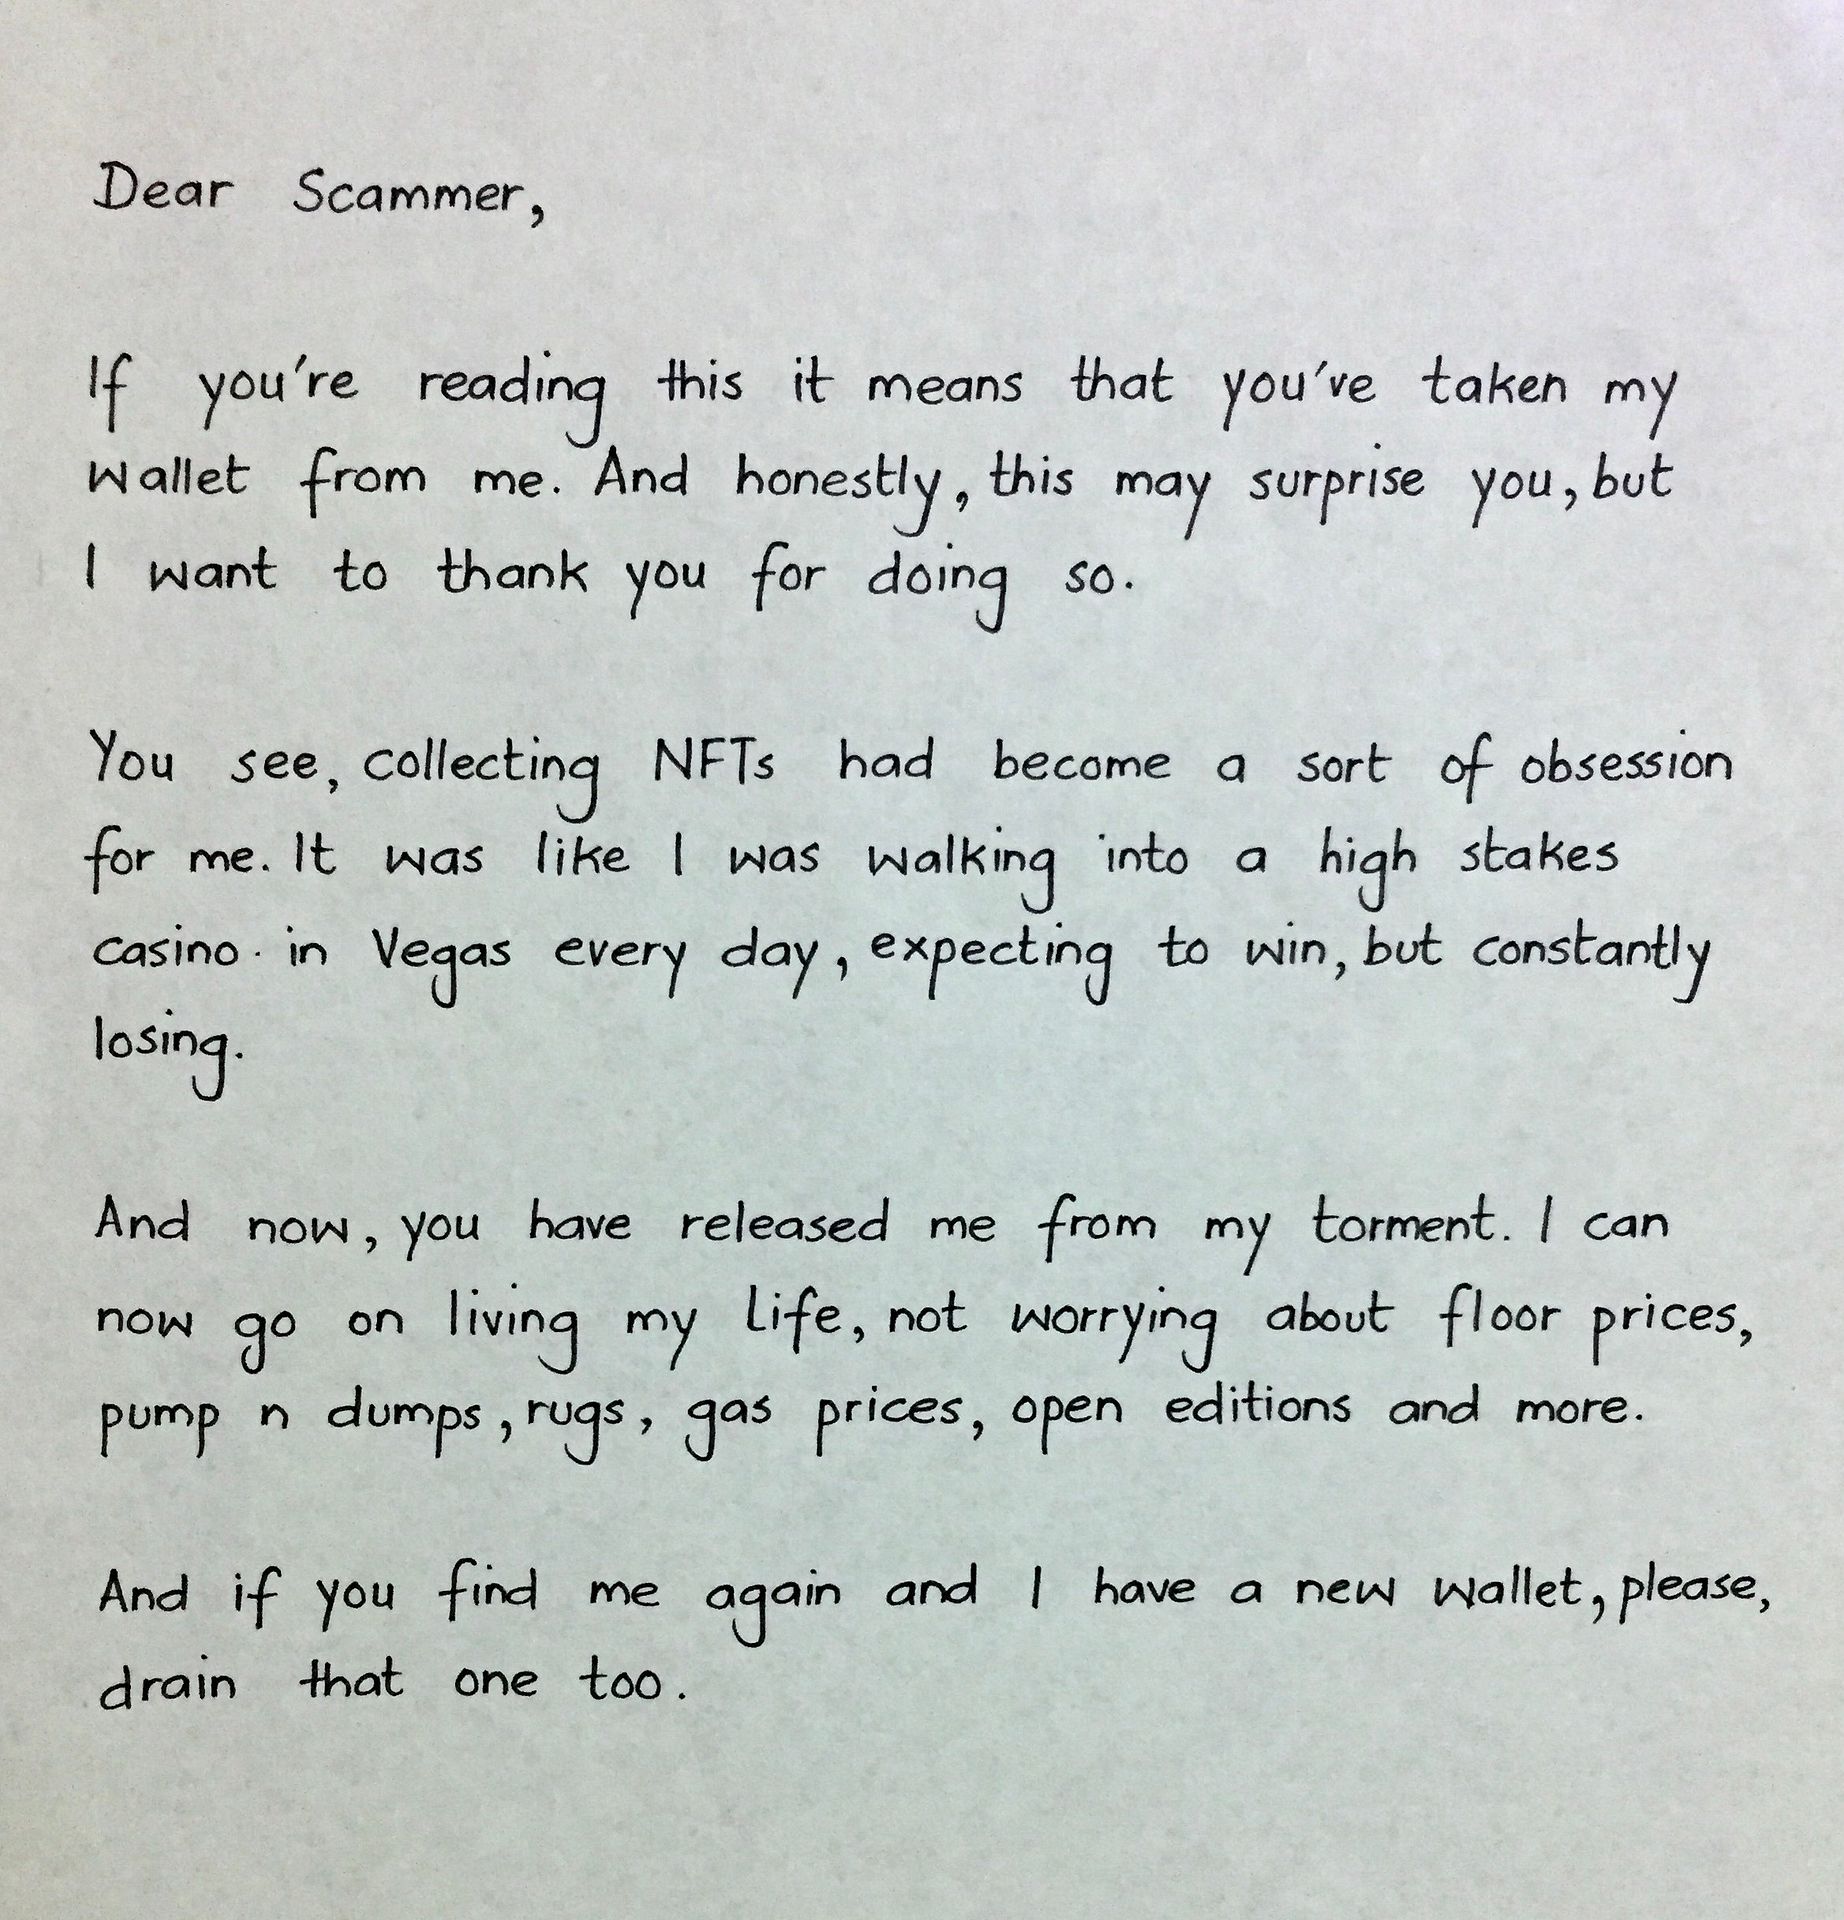 Dear Scammer,
If you're reading this it means that you've taken my
wallet from me. And honestly, this may surprise you, but
I want to thank you for doing so.
You see, collecting NFTs had become a sort of obsession
for me. It was like I was walking into a high stakes
casino in Vegas every day, expecting to win, but constantly
losing.
And now, you have released me from my torment. I can
now go on living my life, not worrying about floor prices,
pump n dumps, rugs, gas prices, open editions and more.
And if you find me again and I have a new wallet, please,
drain that one too.